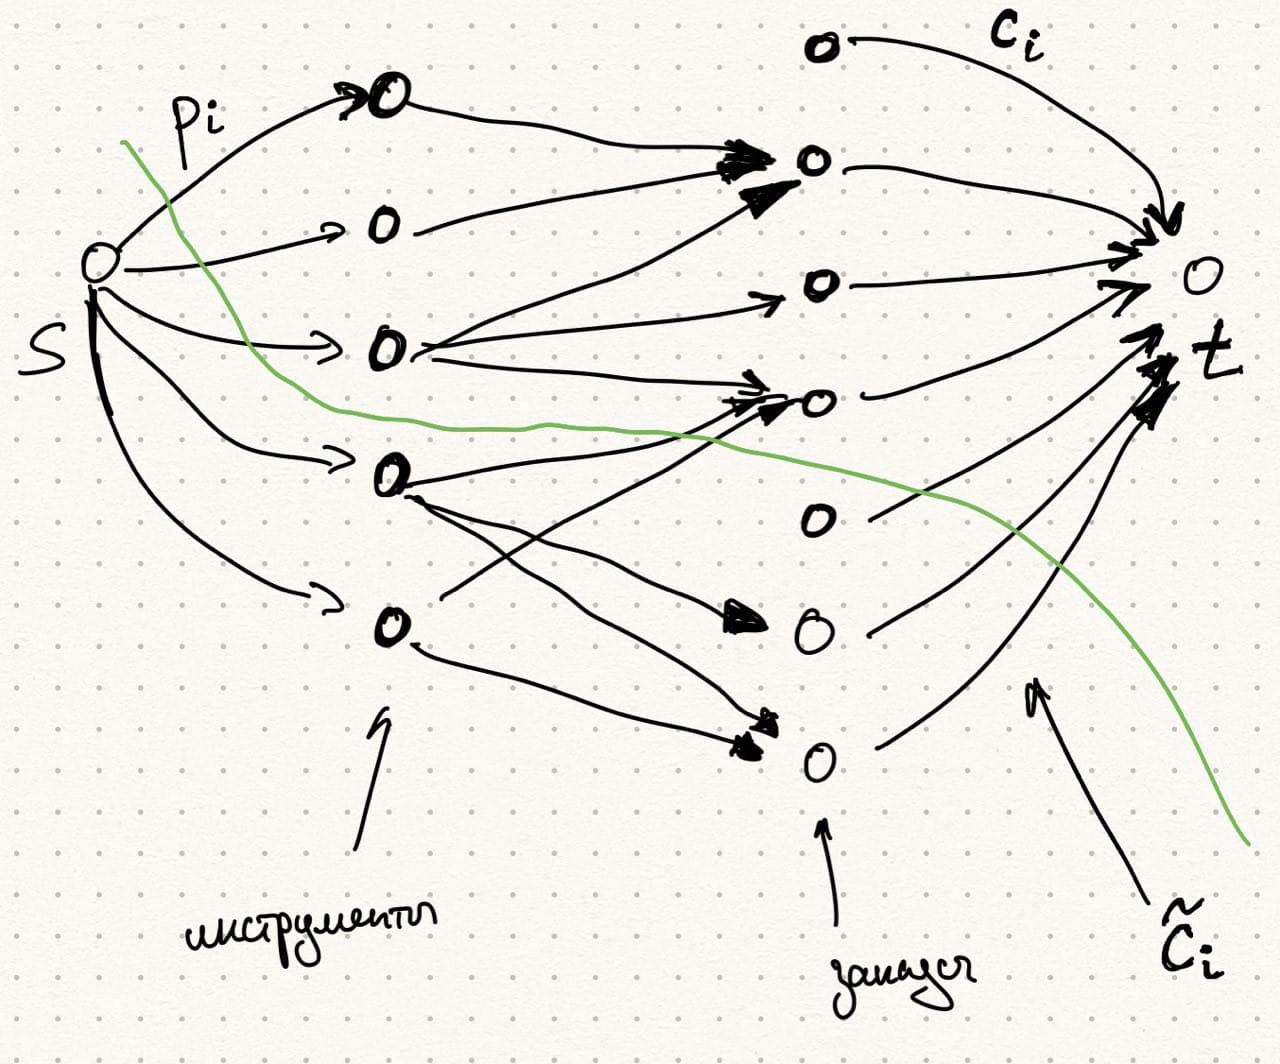 c_i
p_i
s
t
инструменты
заказы
c̃_i